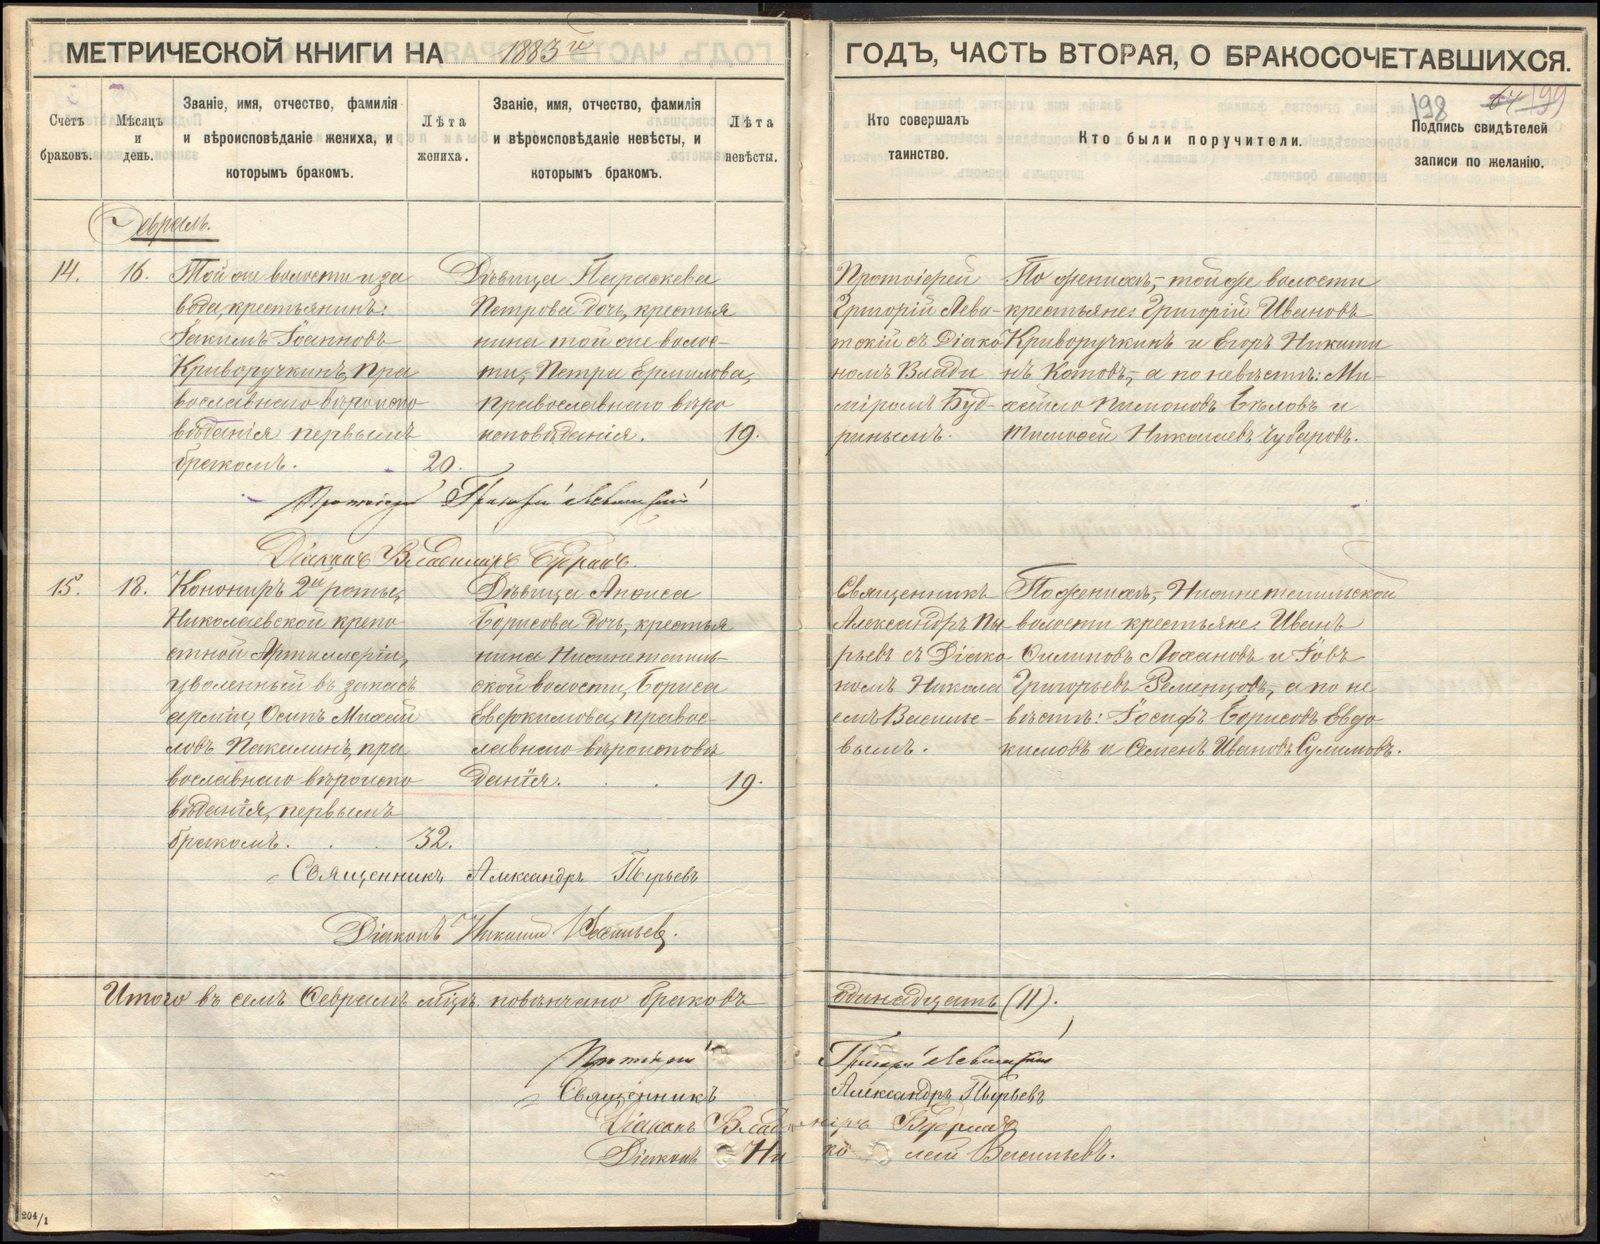 МЕТРИЧЕСКОЙ КНИГИ НА 1883й ГОДЪ, ЧАСТЬ ВТОРАЯ, О БРАКОСОЧЕТАВШИХСЯ.
198 199
Счетъ браковъ.
Мѣсяцъ и день.
Званіе, имя, отчество, фамилія и вѣроисповѣданіе жениха, и которымъ бракомъ.
Лѣта жениха.
Званіе, имя, отчество, фамилія и вѣроисповѣданіе невѣсты, и которымъ бракомъ.
Лѣта невѣсты.
Кто совершалъ таинство.
Кто были поручители.
Подпись свидѣтелей записи по желанію.
Февраль.
14.
16.
Той же волости и за
вода, крестьянинъ:
Іакимъ Іоанновъ
Криворучкинъ, пра
вославнаго вѣроиспо
вѣданія первымъ
бракомъ.
20.
Дѣвица Параскева
Петрова дочь, крестья
нина той же волос-
ти, Петра Ермилова,
православнаго вѣро
исповѣданія.
19.
Протоіерей
Григорій Леви-
тскій съ Діако
номъ Влади
міромъ Буд-
ринымъ.
По женихѣ, той же волости
крестьяне: Григорій Ивановъ
Криворучкинъ и Егоръ Никити
нъ Котовъ, а по невѣстѣ: Ми-
хайло Пимоновъ Бѣловъ и
Тимофей Николаевъ Чубаровъ.
Протоіерей Григорій Левитскій
Діаконъ Владиміръ Будринъ.
15.
18.
Конониръ 2й роты,
Николаевской крепо
стной Артиллеріи,
уволенный въ запасъ
арміи, Осипъ Михай
ловъ Пакилинъ, пра
вославнаго вѣроиспо
вѣданія, первымъ
бракомъ.
32.
Дѣвица Анѳиса
Борисова дочь, крестья
нина Нижнетагиль-
ской волости, Бориса
Евдокимова, правос-
лавнаго вѣроисповѣ
данія.
19.
Священникъ
Александръ Пы
рьевъ съ Діако
номъ Никола
емъ Василье-
вымъ.
По женихѣ, Нижнетагильской
волости крестьяне: Иванъ
Филиповъ Лохановъ и Іовъ
Григорьевъ Ременцовъ, а по не
вѣстѣ: Іосифъ Борисовъ Евдо
кимовъ и Семенъ Ивановъ Сулимовъ.
Священникъ Александръ Пырьевъ
Діаконъ Николай Васильевъ.
Итого въ семъ Февралѣ мѣцѣ повѣнчано браковъ одинадцать (11).
Протоіерей Григорій Левитскій
Священникъ Александръ Пырьевъ
Діаконъ Владиміръ Будринъ
Діаконъ Николай Васильевъ.
204/1